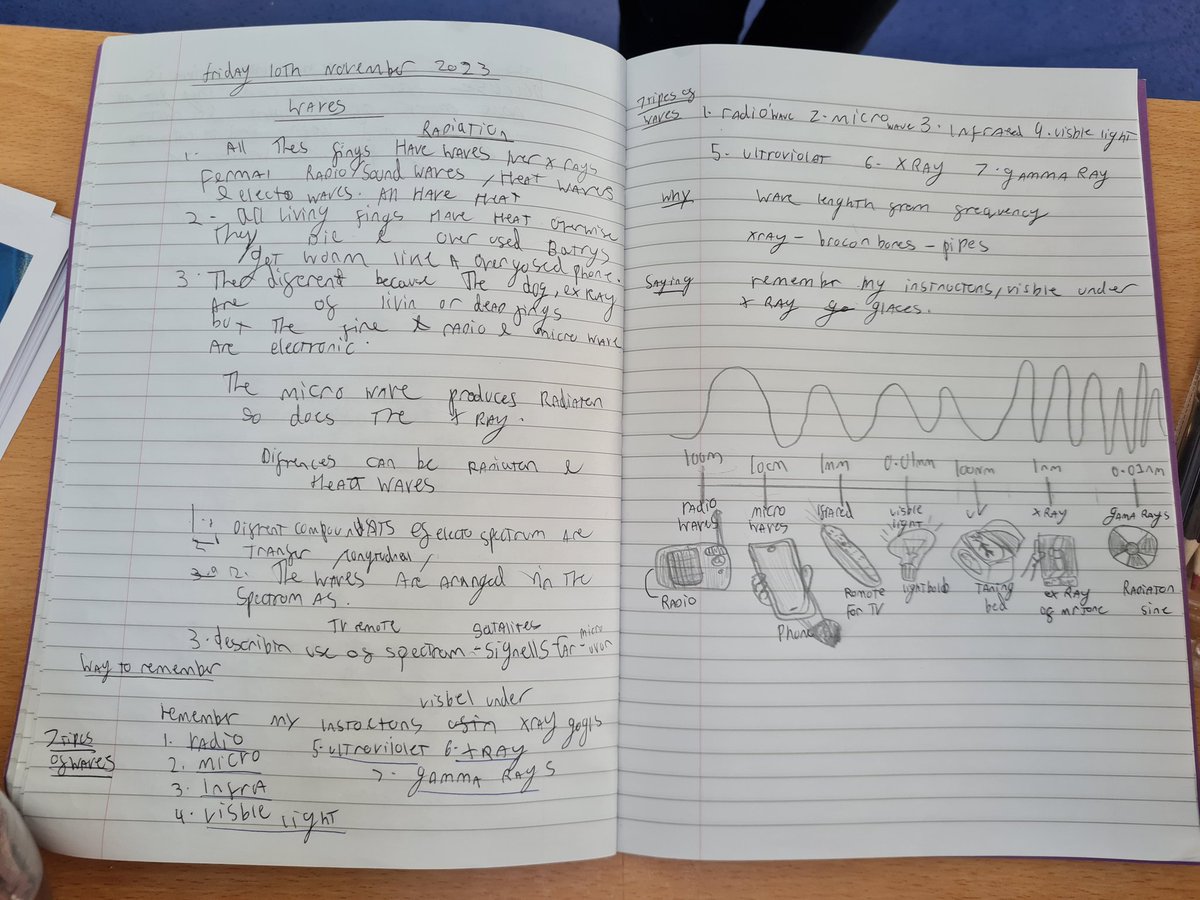 friday 10th November 2023
Waves
Radiation
1. All thes fings Have waves X rays
Fermal Radio/Sound waves / Heat waves
& electo waves. All Have Heat
2 - all living fings Have Heat otherwise
They Die & over used Batrys
/get worm like A overyosed phone.
3. The diferent because The dog, ex RAY
Are of livin or dead fings
but The fire & radio & micro wave
Are electronic.
The micro wave produces Radiaton
So does The X RAY.
Difrences can be Radiaton &
Heat waves
1. Difrent compounants of electo spectrum are
Transfer /longitudinal,
2. The waves Are Arranged in The
Spectrum As.
TV remote satalites
3. describin use of spectrum - Signells far - micro
Way to remember
visbel under
remember my instoctons usin xray gogls
7 tipes of waves
1. radio
2. micro
3. Infra
4. visble light
5. ultrovilolet 6. X RAY
7. gamma Rays
7 tripes of waves
1. radio wave 2. micro wave 3. Infrared 4. visble light
5. ultroviolet 6. X RAY 7. gamma RAY
why
wave lenghth from frequency
xray - brocon bones - pipes
Saying
remember my instructons, visble under
X RAY go glaces.
100m 10cm 1mm 0.01mm 100nm 1nm 0.01nm
radio waves
micro waves
Ifared
visble light
UV
X RAY
gama Rays
Radio
Phone
Remote For TV
lightbolb
Taning bed
ex Ray of
Radiaton sine